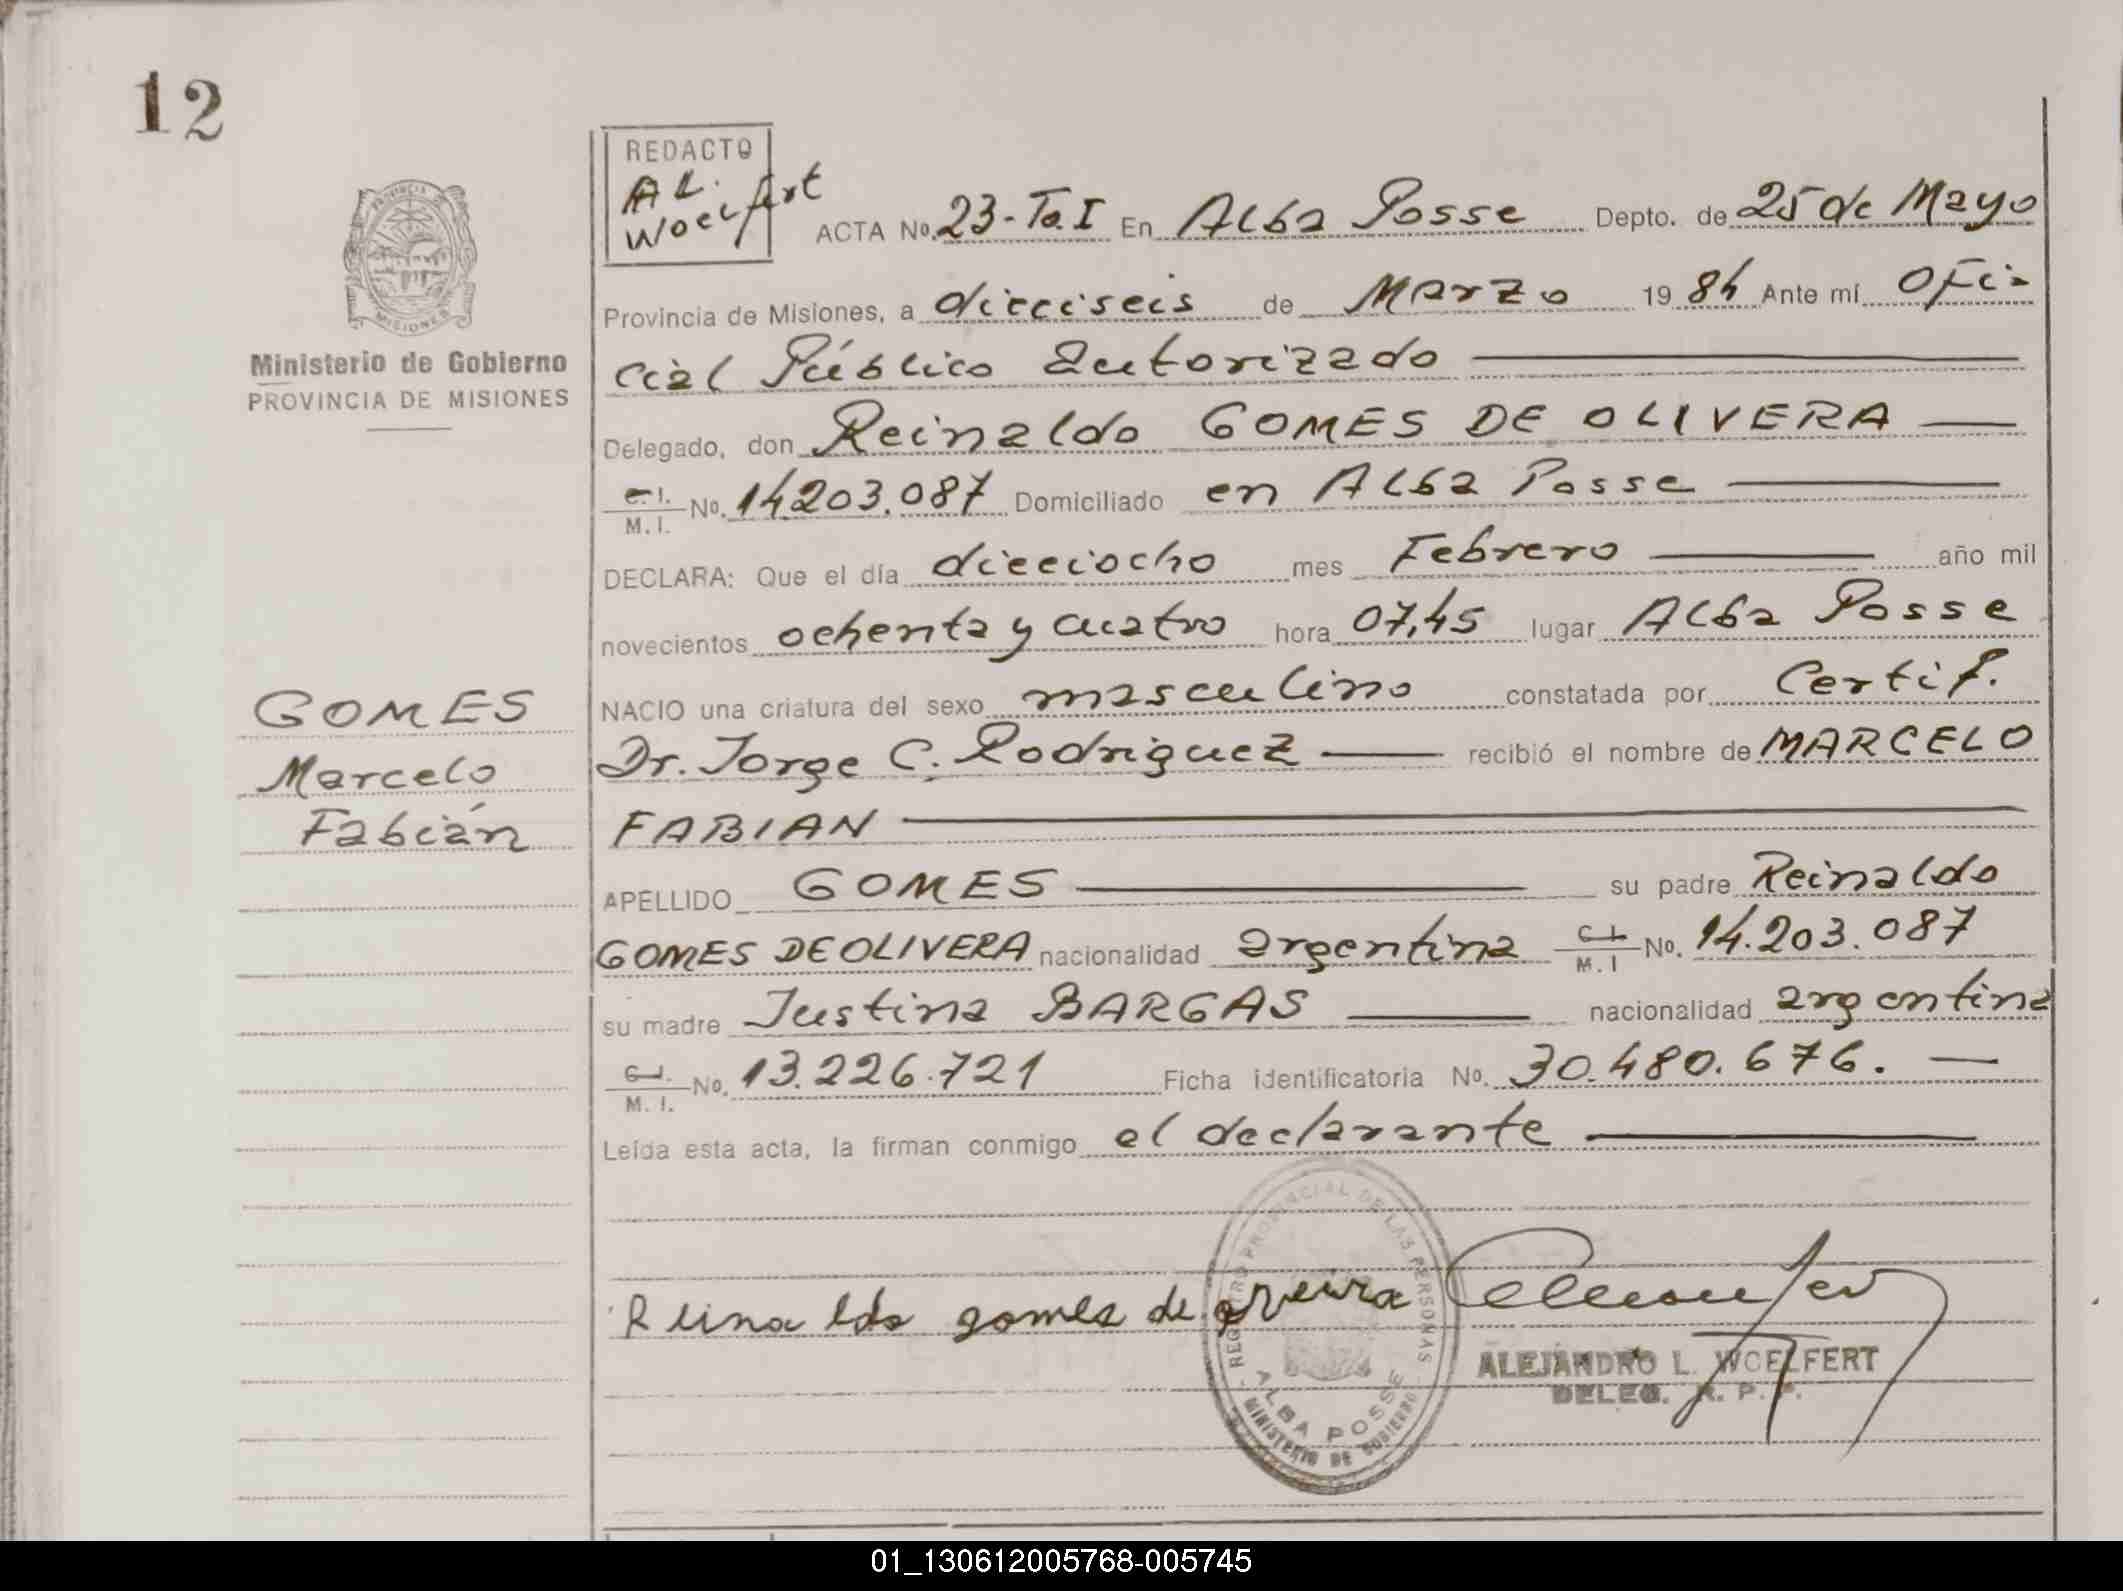 12
REDACTO
AL.
Woelfert
ACTA No. 23-To.I En Alba Posse Depto. de 25 de Mayo
Provincia de Misiones, a dieciseis de Marzo 19 84 Ante mí Ofi-
cial Público autorizado
Delegado, don Reinaldo GOMES DE OLIVERA
C.I.
M.I. No. 14.203.087 Domiciliado en Alba Posse
DECLARA: Que el día dieciocho mes Febrero año mil
novecientos ochenta y cuatro hora 07,45 lugar Alba Posse
NACIO una criatura del sexo masculino constatada por Certif.
Dr. Jorge C. Rodriguez recibió el nombre de MARCELO
FABIAN
APELLIDO GOMES su padre Reinaldo
GOMES DE OLIVERA nacionalidad argentina C.I.
M.I No. 14.203.087
su madre Justina BARGAS nacionalidad argentina
C.I.
M.I. No. 13.226.721 Ficha identificatoria No. 30.480.676.
Leída esta acta, la firman conmigo el declarante
Reinaldo gomes de
ALEJANDRO L. WOELFERT
DELEG. R. P. P.
REGISTRO PROVINCIAL DE LAS PERSONAS
ALBA POSSE
MINISTERIO DE GOBIERNO
PROVINCIA DE
MISIONES
Ministerio de Gobierno
PROVINCIA DE MISIONES
GOMES
Marcelo
Fabián
01_130612005768-005745